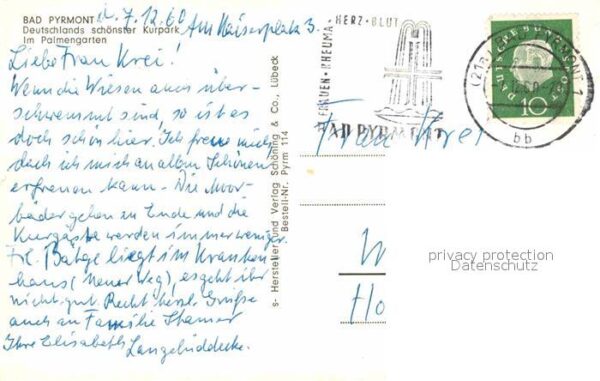 BAD PYRMONT
Deutschlands schönster Kurpark
Im Palmengarten
d. 7.12.60 Am Kaiserplatz 3.
Liebe Frau Krei!
Wenn die Wiesen auch über-
schwemmt sind, so ist es
doch schön hier. Ich freue mich
daß ich mich an allem Schönen
erfreuen kann - Die Moor-
bäder gehen zu Ende und die
Kurgäste werden immer weniger.
Frl. Batge liegt im Kranken
haus (Neuer Weg), es geht ihr
nicht gut. Recht herzl. Grüße
auch an Familie
Ihre Elisabeth
Langelüddecke.
s- Hersteller und Verlag Schöning & Co., Lübeck
Bestell-Nr. Pyrm 114
FRAUEN · RHEUMA · HERZ · BLUT
BAD PYRMONT
(21a) BAD PYRMONT 1
bb
DEUTSCHE BUNDESPOST
10
Frau Krei
W
Ho
privacy protection
Datenschutz